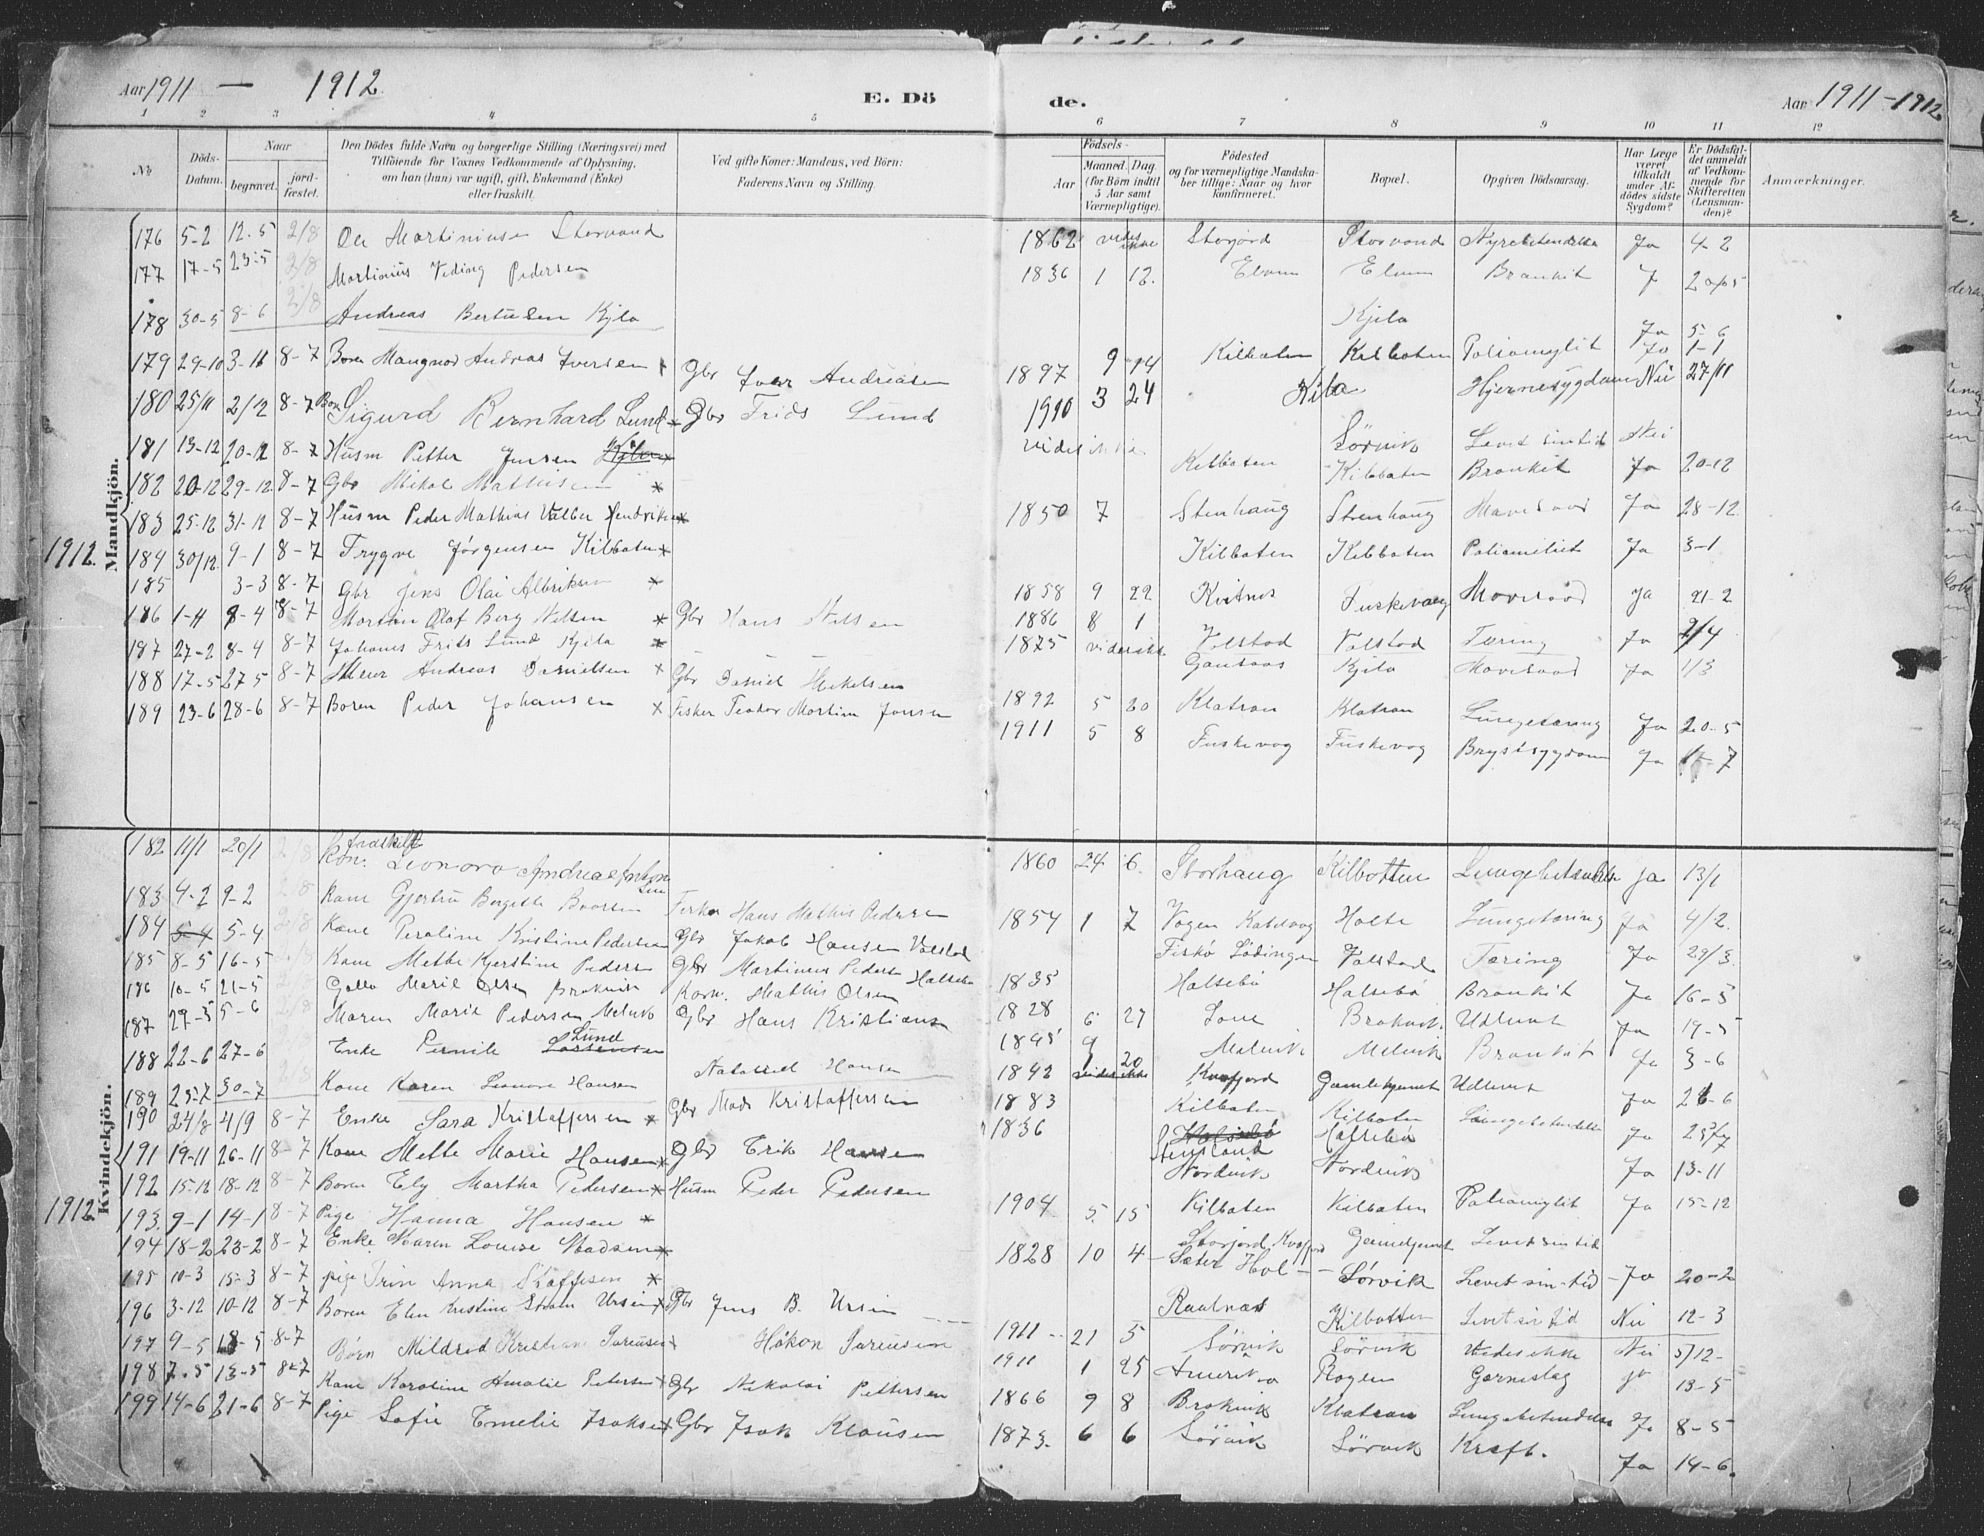 Aar 1911 — 1912
E. Dö
de.
Aar 1911-1912
1 2 3 4 5 6 7 8 9 10 11 12
No.
Döds-Datum.
Naar
begravet.
jord-fæstet.
Den Dödes fulde Navn og borgerlige Stilling (Næringsvei) med
Tilföiende för Voxnes Vedkommende af Oplysning,
om han (hun) var ugift, gift, Enkemand (Enke)
eller fraskilt.
Ved gifte Koner: Mandens, ved Börn:
Faderens Navn og Stilling.
Födsels-
Aar
Maaned. Dag.
(for Börn indtil 5 Aar samt Værnepligtige).
Födested
og for værnepligtige Mandska-
ber tillige: Naar og hvor
konfirmeret.
Bopæl.
Opgiven Dödsaarsag.
Har Læge været tilkaldt under Afdödes sidste Sygdom?
Er Dödsfaldet anmeldt af Vedkommende for Skifteretten (Lensmanden)?
Anmærkninger.
Mandkjön.
176 5-2 12-5 2/8 Ole Martiniusen Storvand 1862 vides ikke Storjord Storvand Nyrebetendelse Ja 4-2
177 17-5 23-5 2/8 Martinius Pedersen 1836 1 12. Elvum Elvum Bronkit J
178 30-5 8-6 2/8 Andreas Bertusen Kjila Kjila Ja 5-6
179 29-10 3-11 8-7 Boren Mangnor Andreas Iversen Gbr Iver Andreasen 1897 9 14 Kilboten Kilboten Poliomylit Ja 1-1
180 25/11 2/12 8-7 Sigurd Bernhard Lund Gbr Frids Lund 1910 3 24 Kila Hjernesygdom Nei 27/11
181 13-12 20-12 8-7 Husm Petter Jensen vides ikke Sørvik Levet sin tid Nei
182 20-12 29-12 8-7 Gbr Mikal Mathisen Kilboten Kilboten Bronkit Ja 20-12
183 25-12 31-12 8-7 Husm Peder Mathias Valber Hendriksen 1850 7 Stenhaug Stenhaug Mavesaar Ja 28-12
1912.
184 30/12 9-1 8-7 Trygve Jørgensen Kilboten Kilboten Kilboten Poliomilit Ja 3-1
185 3-3 8-7 Gbr Jens Olai Albriksen 1858 9 22 Kvitnes Fuskevaag Mavesaar Ja 21-2
186 1-4 8-4 8-7 Martin Olaf Berg Nilsen Gbr Hans Nilsen 1886 8 1 Volstad Volstad Tæring Ja 2/4
187 27-2 8-4 8-7 Johans Frits Lund Kjila 1875 vides ikke Gausaas Kjila Mavesaar Ja 1/3
188 17-5 27 5 8-7 Meier Andreas Danielsen Gbr Daniel Mikelsen 1892 5 20 Klatran Klatran Lungetæring Ja 20-5
189 23-6 28-6 8-7 Boren Peder Johansen Fisker Teodor Martin Jensen 1911 5 8 Fuskevog Fuskevog Brystsygdom Ja
Kvindekjön.
182 11/1 20/1 2/8 fraskilt Kon. Leonora Andrea 1860 24 6. Storhaug Kilbotten Lungebetendelse ja 13/1
183 4-2 9-2 2/8 Kone Gjertru Bergitte Fisker Hans Mathis Pedersen 1854 1 7 Vogen Kasfjord Holte Lungetæring Ja 4/2.
184 5-4 5-4 2/8 Kone Peroline Kristine Pedersen Gbr Jakob Hansen Volstad Fiskø Lødingen Volstad Tæring Ja 29/3
185 8-5 16-5 2/8 Kone Mette Kjerstine Peders Gbr Martinus Peders Halsebø 1835 Halsebø Halsebø Bronkit Ja 16-5
186 10-5 21-5 2/8 Marie Olsen Brokvik Mathis Olsen 1828 6 27 Brokvik Udlevet Ja 19-5
187 29-5 5-6 2/8 Maren Marie Pedersen Melvik Gbr Hans Kristiansen 1895 9 Melvik Melvik Bronkit Ja 3-6
188 22-6 27-6 Enke Pernille Lund 1842 vides ikke Kvæfjord Gamlehjemet Udlevet Ja 26-6
189 23-7 30-7 2/8 Kone Karen Leonore Hansen Hansen 1883 Kilboten Kilboten Lungebetendelse Ja
190 24/8 4/9 8-7 Enke Sara Kristoffersen Gbr Mads Kristoffersen 1836 Halsebø
191 19-11 26-11 8-7 Kone Mette Marie Hansen Gbr Erik Hansen Nordvik Nordvik Ja 13-11
192 15-12 18-12 8-7 Boren Ely Martha Pedersen Husm Peder Pedersen 1904 5. 15 Kilboten Kilboten Poliomylit Ja 15-12
1912
193. 9-1 14-1 8-7 Pige Hanna Hansen Storjord Kvæfjord Gamlehjemet Levet sin tid
194 18-2 23-2 8-7 Enke Maren Louise Madsen 1828 10 4 Sæter Hol Sørvik Levet sin tid Ja 20-2
195 10-3 15-3 8-7 pige Trin Anna Staffesen Raatnæs Kilbotten Levet sin tid Nei 12-3
196 3-12 10-12 8-7 Boren Elen Kristine Strøm Ursin Gbr Jens B. Ursin 1911 21 5 Sørvik Sørvik Vides ikke Nei 5/12
197 9-5 18-5 8-7 Børn Mildred Kristian Sørensen Håkon Sørensen 1911 1 25 Amerika Rogen ja 13-5
198 7-5 13-5 8-7 Kone Karoline Amalie Petersen Gbr Nikolai Pettersen 1866 9 8 Brokvik Klatran Lungebetendelse Ja 8-5
199 14-6 21-6 8-7 Pige Sofie Emelie Isaksen Gbr Isak Klausen 1873. 6 6 Sørvik Sørvik Kræft. Ja 14-6.